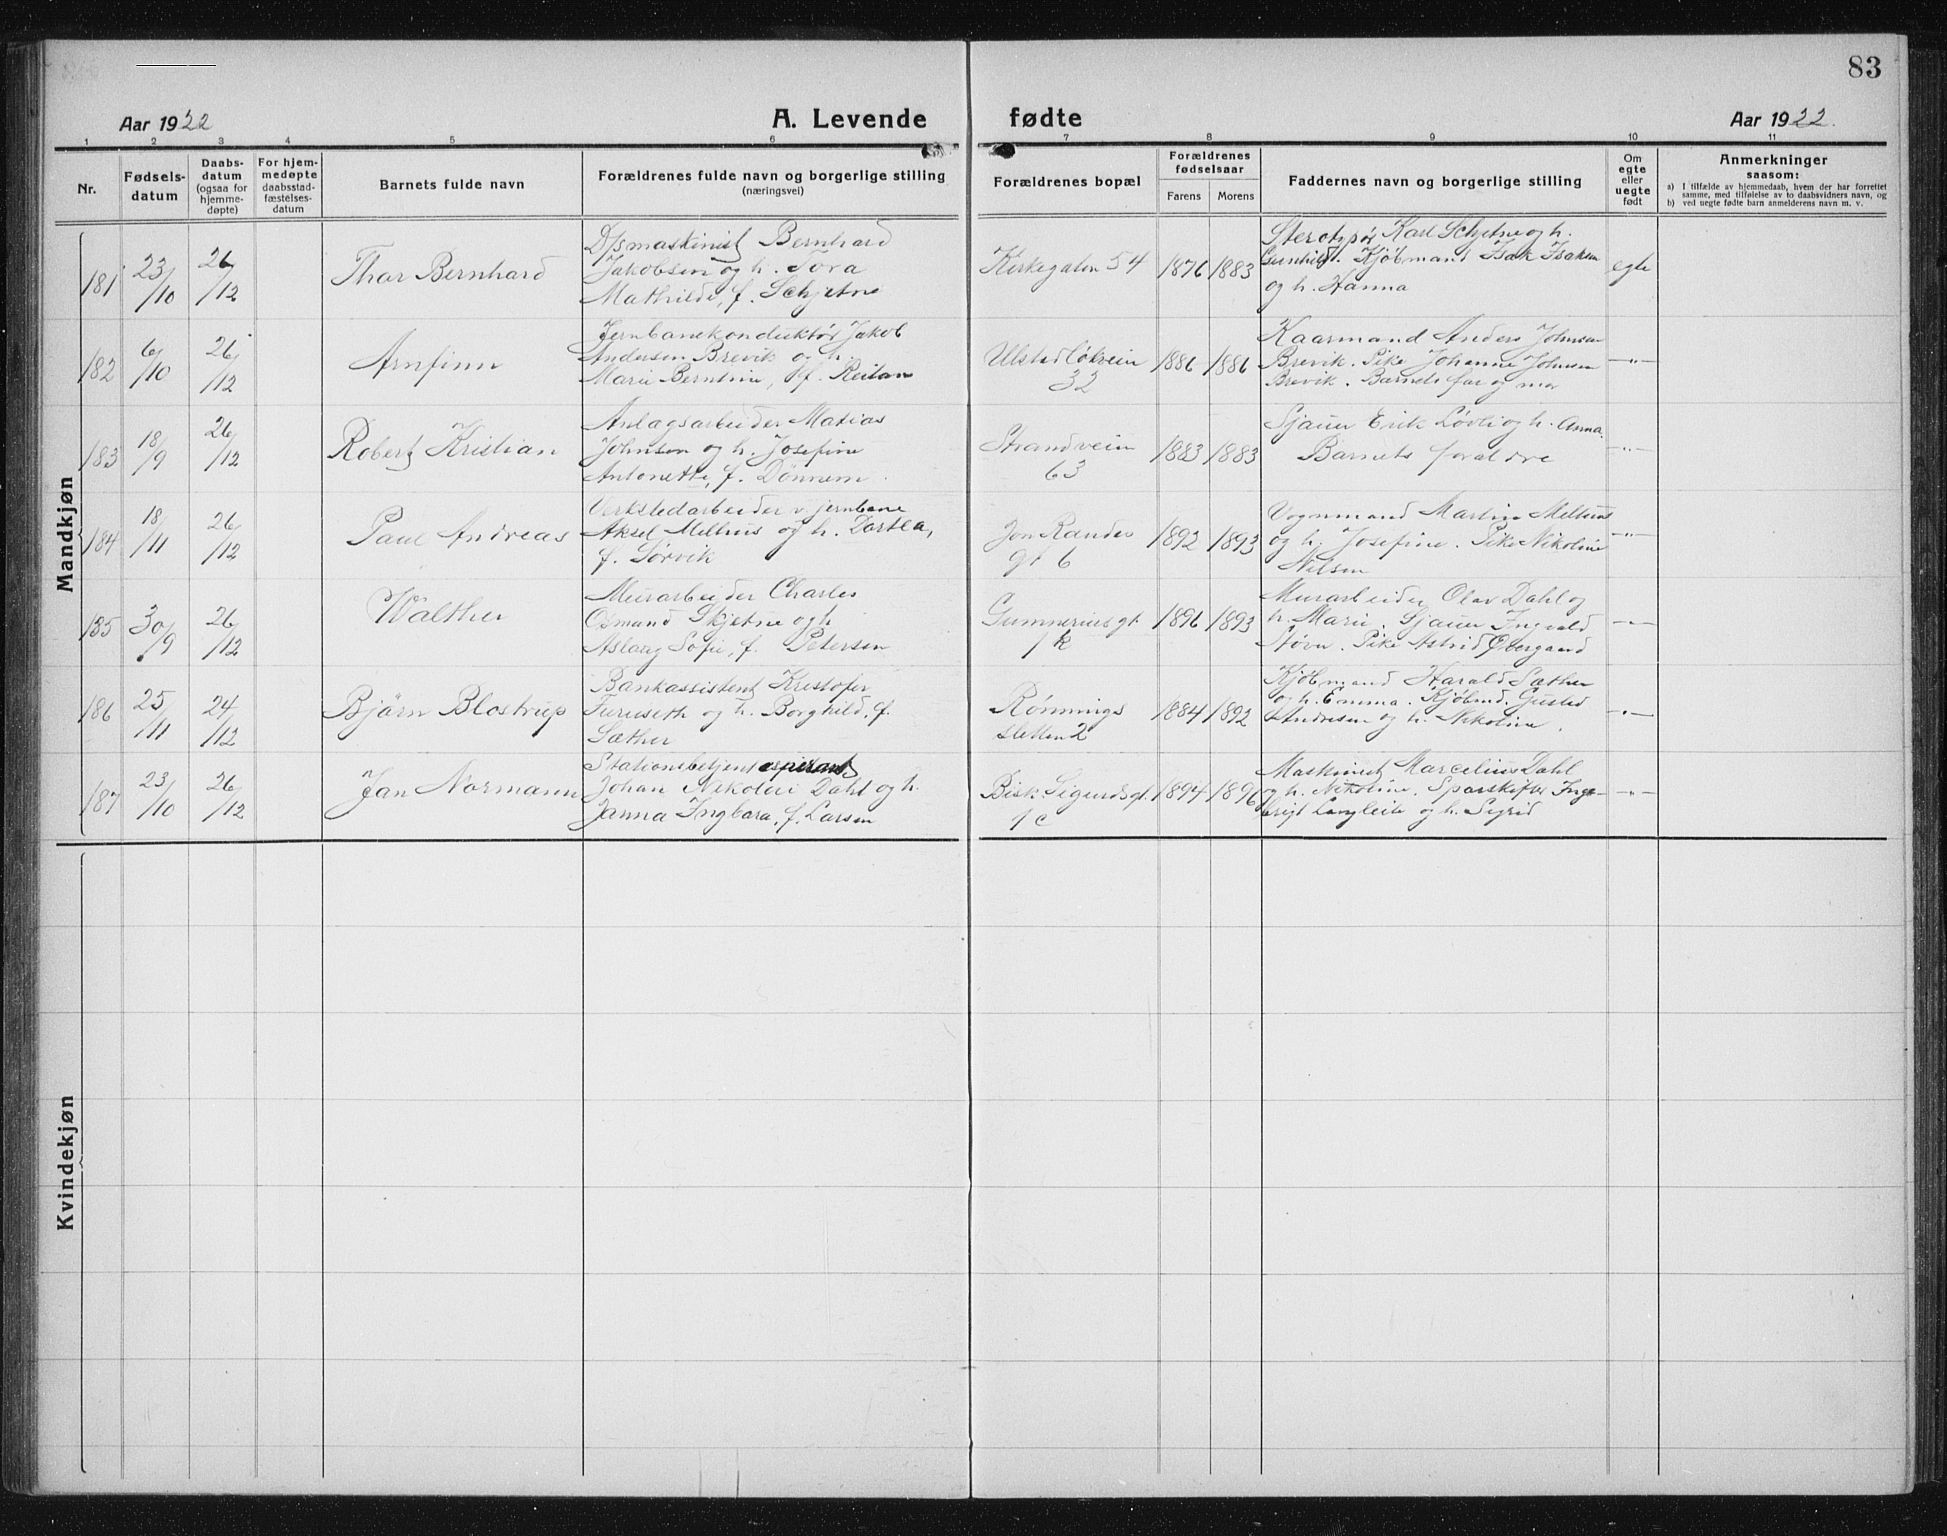 83
Aar 1922
A. Levende fødte
Aar 1922.
1 2 3 4 5 6 7 8 9 10 11
Nr.
Fødsels-
datum
Daabs-
datum
(ogsaa for
hjemme-
døpte)
For hjem-
medøpte
daabsstad-
fæstelses-
datum
Barnets fulde navn
Forældrenes fulde navn og borgerlige stilling
(næringsvei)
Forældrenes bopæl
Forældrenes
fødselsaar
Farens Morens
Faddernes navn og borgerlige stilling
Om
egte
eller
uegte
født
Anmerkninger
saasom:
a) I tilfælde av hjemmedaab, hvem der har forrettet
samme, med tilføielse av to daabsvidners navn, og
b) ved uegte fødte barn anmelderens navn m. v.
Mandkjøn
181 23/10 26/12 Thor Bernhard
D/smaskinist Bernhard
Jakobsen og h. Tora
Mathilde, f. Schjetne
Kirkegaten 54 1876 1883
Karl Schjetne og h.
Gunhild. Kjøbmand Isak Isaksen
og h. Hanna
egte
182 6/10 26/12 Arnfinn
Jernbanekonduktør Jakob
Andersen Brevik og h.
Marie Berntine, f. Reitan
Ulstadløkvein
32
1886 1886
Kaarmand Anders Johnsen
Brevik. Pike Johanne Johnsen
Brevik. Barnets far og mor
-"-
183 18/9 26/12 Robert Kristian
Anlagsarbeider Matias
Johnsen og h. Josefine
Antonette, f. Dönnem.
Strandveien
63
1883 1883
Sjauer Erik Løvli og h. Anna.
Barnets foraldre
-"-
184 18/11 26/12 Paul Andreas
Verkstedarbeider v. jernbane
Aksel Melhus og h. Dortea,
f. Sørvik
Jon Raudes
gt 6
1892 1893
Vognmand Martin Melhus
og h. Josefine. Pike Nikoline
Nilsen
-"-
185 30/9 26/12 Walther
Murarbeider Charles
Osmand Skjetne og h
Aslaug Sofie, f. Petersen
Gunnerius gt.
1k
1896 1893
Murarbeider Olav Dahl og
h. Marie. Sjauer Ingvald
Støvn. Pike Astrid Østergaard
-"-
186 25/11 24/12 Bjørn Blostrup
Bankassistent Kristofer
Furuseth og h. Borghild, f.
Sæther
Rønnings
sletten 2
1884 1892
Kjøbmand Harald Sæther
og h. Emma. Kjøbmd. Gustad
Andresen og h. Nikoline.
-"-
187 23/10 26/12 Jan Normann
Stationsbetjent aspirant
Johan Nikolai Dahl og h.
Janna Ingbara, f. Larsen
Bisk. Sigurds gt.
1c
1894 1896
Maskinist Marcelius Dahl
og h. Nikoline. Sporskifter Inge-
brigt Langleite og h. Sigrid
-"-
Kvindekjøn